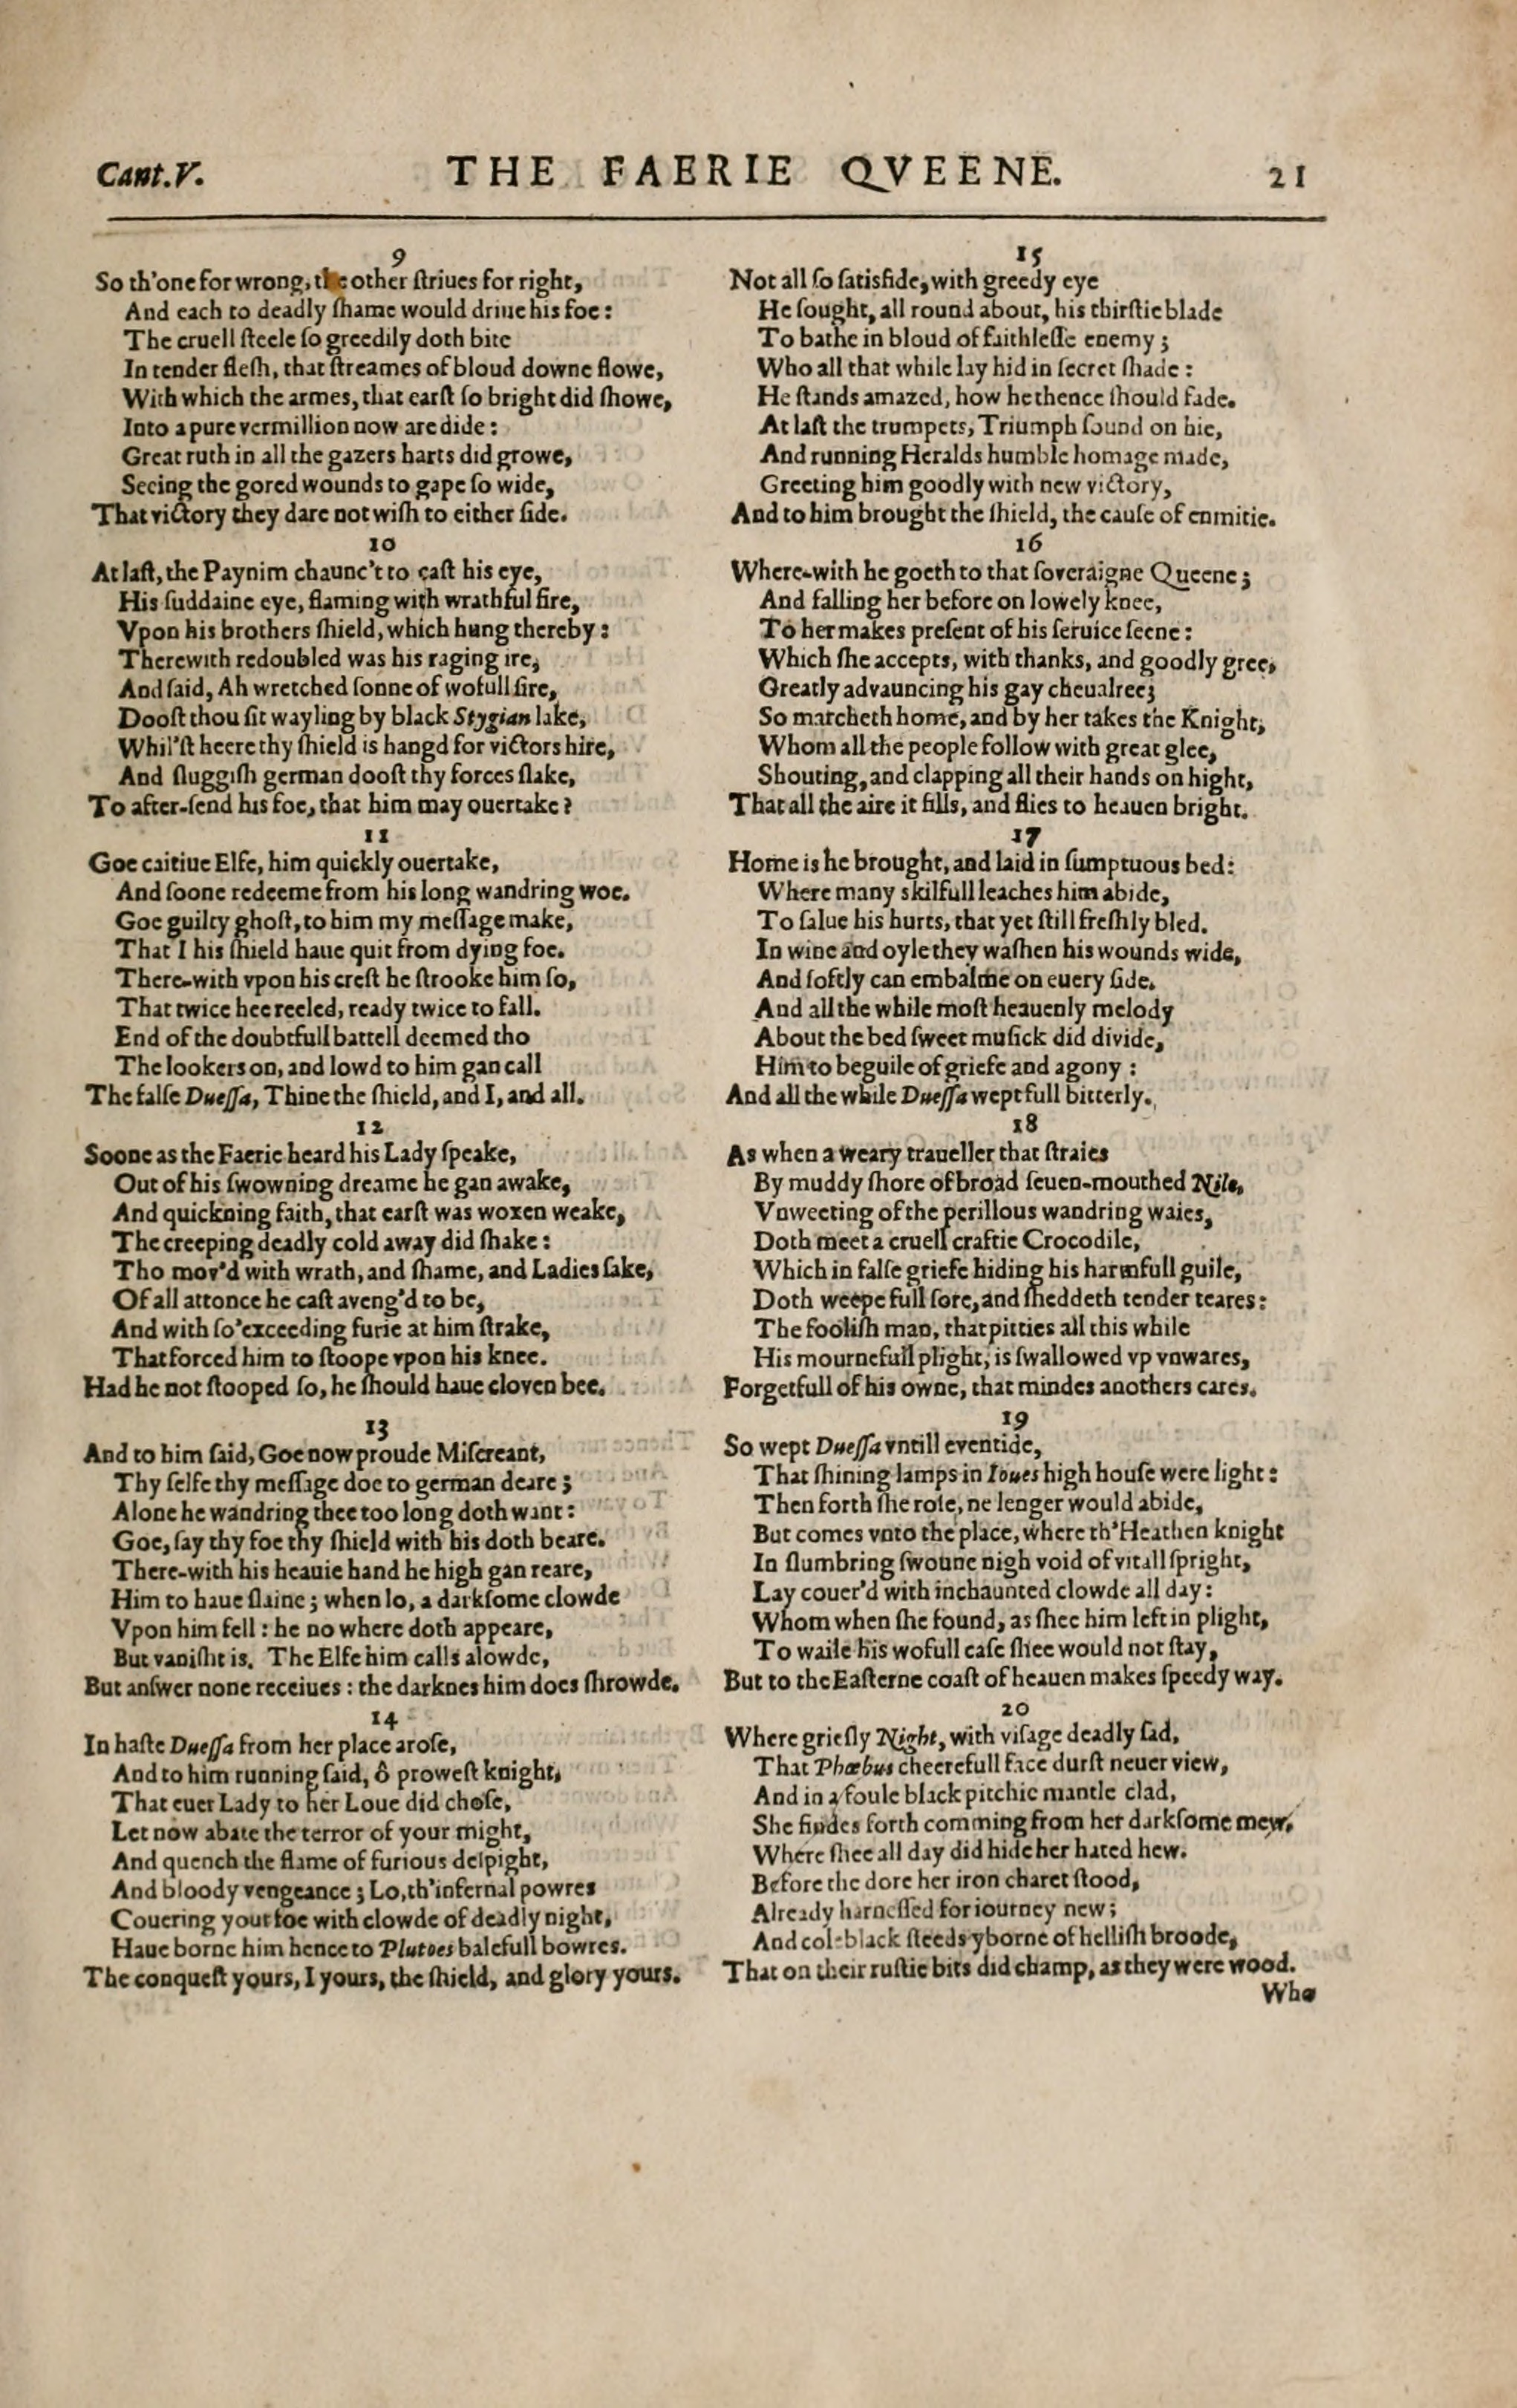 Cant.V. THE FAERIE QVEENE. 21
9
So th'one for wrong, the other ſtriues for right,
And each to deadly ſhame would driue his foe:
The cruell ſteele ſo greedily doth bite
In tender fleſh, that ſtreames of bloud downe flowe,
With which the armes, that earſt ſo bright did ſhowe,
Into a pure vermillion now are dide:
Great ruth in all the gazers harts did growe,
Seeing the gored wounds to gape ſo wide,
That victory they dare not wiſh to either ſide.
10
At laſt, the Paynim chaunc't to caſt his eye,
His ſuddaine eye, flaming with wrathful fire,
Vpon his brothers ſhield, which hung thereby:
Therewith redoubled was his raging ire,
And ſaid, Ah wretched ſonne of wofull ſire,
Dooſt thou ſit wayling by black Stygian lake,
Whil'ſt heere thy ſhield is hangd for victors hire,
And ſluggiſh german dooſt thy forces ſlake,
To after-ſend his foe, that him may ouertake?
11
Goe caitiue Elfe, him quickly ouertake,
And ſoone redeeme from his long wandring woe.
Goe guilty ghoſt, to him my meſſage make,
That I his ſhield haue quit from dying foe.
There-with vpon his creſt he ſtrooke him ſo,
That twice hee reeled, ready twice to fall.
End of the doubtfull battell deemed tho
The lookers on, and lowd to him gan call
The falſe Dueſſa, Thine the ſhield, and I, and all.
12
Soone as the Faerie heard his Lady ſpeake,
Out of his ſwowning dreame he gan awake,
And quickning faith, that earſt was woxen weake,
The creeping deadly cold away did ſhake:
Tho mov'd with wrath, and ſhame, and Ladies ſake,
Of all attonce he caſt aveng'd to be,
And with ſo'exceeding furie at him ſtrake,
That forced him to ſtoope vpon his knee.
Had he not ſtooped ſo, he ſhould haue cloven bee.
13
And to him ſaid, Goe now proude Miſcreant,
Thy ſelfe thy meſſage doe to german deare;
Alone he wandring thee too long doth want:
Goe, ſay thy foe thy ſhield with his doth beare.
There-with his heauie hand he high gan reare,
Him to haue ſlaine; when lo, a darkſome clowde
Vpon him fell: he no where doth appeare,
But vaniſht is. The Elfe him calls alowde,
But anſwer none receiues: the darknes him does ſhrowde.
14
In haſte Dueſſa from her place aroſe,
And to him running ſaid, ô proweſt knight,
That euer Lady to her Loue did choſe,
Let now abate the terror of your might,
And quench the flame of furious deſpight,
And bloody vengeance; Lo, th'infernal powres
Couering your foe with clowde of deadly night,
Haue borne him hence to Plutoes balefull bowres.
The conqueſt yours, I yours, the ſhield, and glory yours.
15
Not all ſo ſatisfide, with greedy eye
He ſought, all round about, his thirſtie blade
To bathe in bloud of faithleſſe enemy;
Who all that while lay hid in ſecret ſhade:
He ſtands amazed, how he thence ſhould fade.
At laſt the trumpets, Triumph ſound on hie,
And running Heralds humble homage made,
Greeting him goodly with new victory,
And to him brought the ſhield, the cauſe of enmitie.
16
Where-with he goeth to that ſoveraigne Queene;
And falling her before on lowely knee,
To her makes preſent of his ſeruice ſeene:
Which ſhe accepts, with thanks, and goodly gree,
Greatly advauncing his gay cheualree;
So marcheth home, and by her takes the Knight,
Whom all the people follow with great glee,
Shouting, and clapping all their hands on hight,
That all the aire it fills, and flies to heauen bright.
17
Home is he brought, and laid in ſumptuous bed:
Where many skilfull leaches him abide,
To ſalue his hurts, that yet ſtill freſhly bled.
In wine and oyle they waſhen his wounds wide,
And ſoftly can embalme on euery ſide.
And all the while moſt heauenly melody
About the bed ſweet muſick did divide,
Him to beguile of griefe and agony:
And all the while Dueſſa wept full bitterly.
18
As when a weary traueller that ſtraies
By muddy ſhore of broad ſeuen-mouthed Nile,
Vnweeting of the perillous wandring waies,
Doth meet a cruell craftie Crocodile,
Which in falſe griefe hiding his harmfull guile,
Doth weepe full ſore, and ſheddeth tender teares:
The fooliſh man, that pitties all this while
His mournefull plight, is ſwallowed vp vnwares,
Forgetfull of his owne, that mindes anothers cares.
19
So wept Dueſſa vntill eventide,
That ſhining lamps in Ioues high houſe were light:
Then forth ſhe roſe, ne lenger would abide,
But comes vnto the place, where th'Heathen knight
In ſlumbring ſwoune nigh void of vitall ſpright,
Lay couer'd with inchaunted clowde all day:
Whom when ſhe found, as ſhee him left in plight,
To waile his wofull caſe ſhee would not ſtay,
But to the Eaſterne coaſt of heauen makes ſpeedy way.
20
Where grieſly Night, with viſage deadly ſad,
That Phœbus cheerefull face durſt neuer view,
And in a foule black pitchie mantle clad,
She findes forth comming from her darkſome mew,
Where ſhee all day did hide her hated hew.
Before the dore her iron charet ſtood,
Already harneſſed for iourney new;
And col-black ſteeds yborne of helliſh broode,
That on their ruſtie bits did champ, as they were wood.
Who